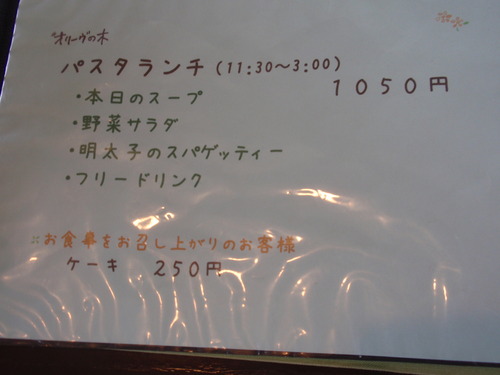 オリーヴの木
パスタランチ (11:30~3:00)
1050円
・本日のスープ
・野菜サラダ
・明太子のスパゲッティー
・フリードリンク
※お食事をお召し上がりのお客様
ケーキ 250円